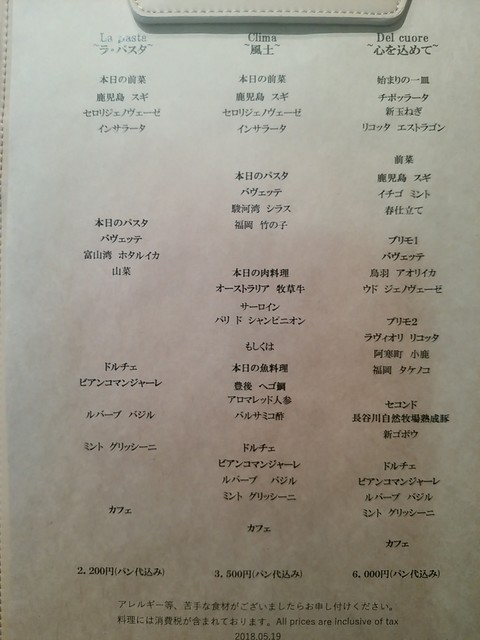 La pasta
~ラ・パスタ~
本日の前菜
鹿児島 スギ
セロリジェノヴェーゼ
インサラータ
本日のパスタ
バヴェッテ
富山湾 ホタルイカ
山菜
ドルチェ
ビアンコマンジャーレ
ルバーブ バジル
ミント グリッシーニ
カフェ
2,200円(パン代込み)
Clima
~風土~
本日の前菜
鹿児島 スギ
セロリジェノヴェーゼ
インサラータ
本日のパスタ
バヴェッテ
駿河湾 シラス
福岡 竹の子
本日の肉料理
オーストラリア 牧草牛
サーロイン
パリ ド シャンピニオン
もしくは
本日の魚料理
豊後 ヘゴ鯛
アロマレッド人参
バルサミコ酢
ドルチェ
ビアンコマンジャーレ
ルバーブ バジル
ミント グリッシーニ
カフェ
3,500円(パン代込み)
Del cuore
~心を込めて~
始まりの一皿
チポッラータ
新玉ねぎ
リコッタ エストラゴン
前菜
鹿児島 スギ
イチゴ ミント
春仕立て
プリモ1
バヴェッテ
鳥羽 アオリイカ
ウド ジェノヴェーゼ
プリモ2
ラヴィオリ リコッタ
阿寒町 小鹿
福岡 タケノコ
セコンド
長谷川自然牧場熟成豚
新ゴボウ
ドルチェ
ビアンコマンジャーレ
ルバーブ バジル
ミント グリッシーニ
カフェ
6,000円(パン代込み)
アレルギー等、苦手な食材がございましたらお申し付けください。
料理には消費税が含まれております。All prices are inclusive of tax
2018.05.19